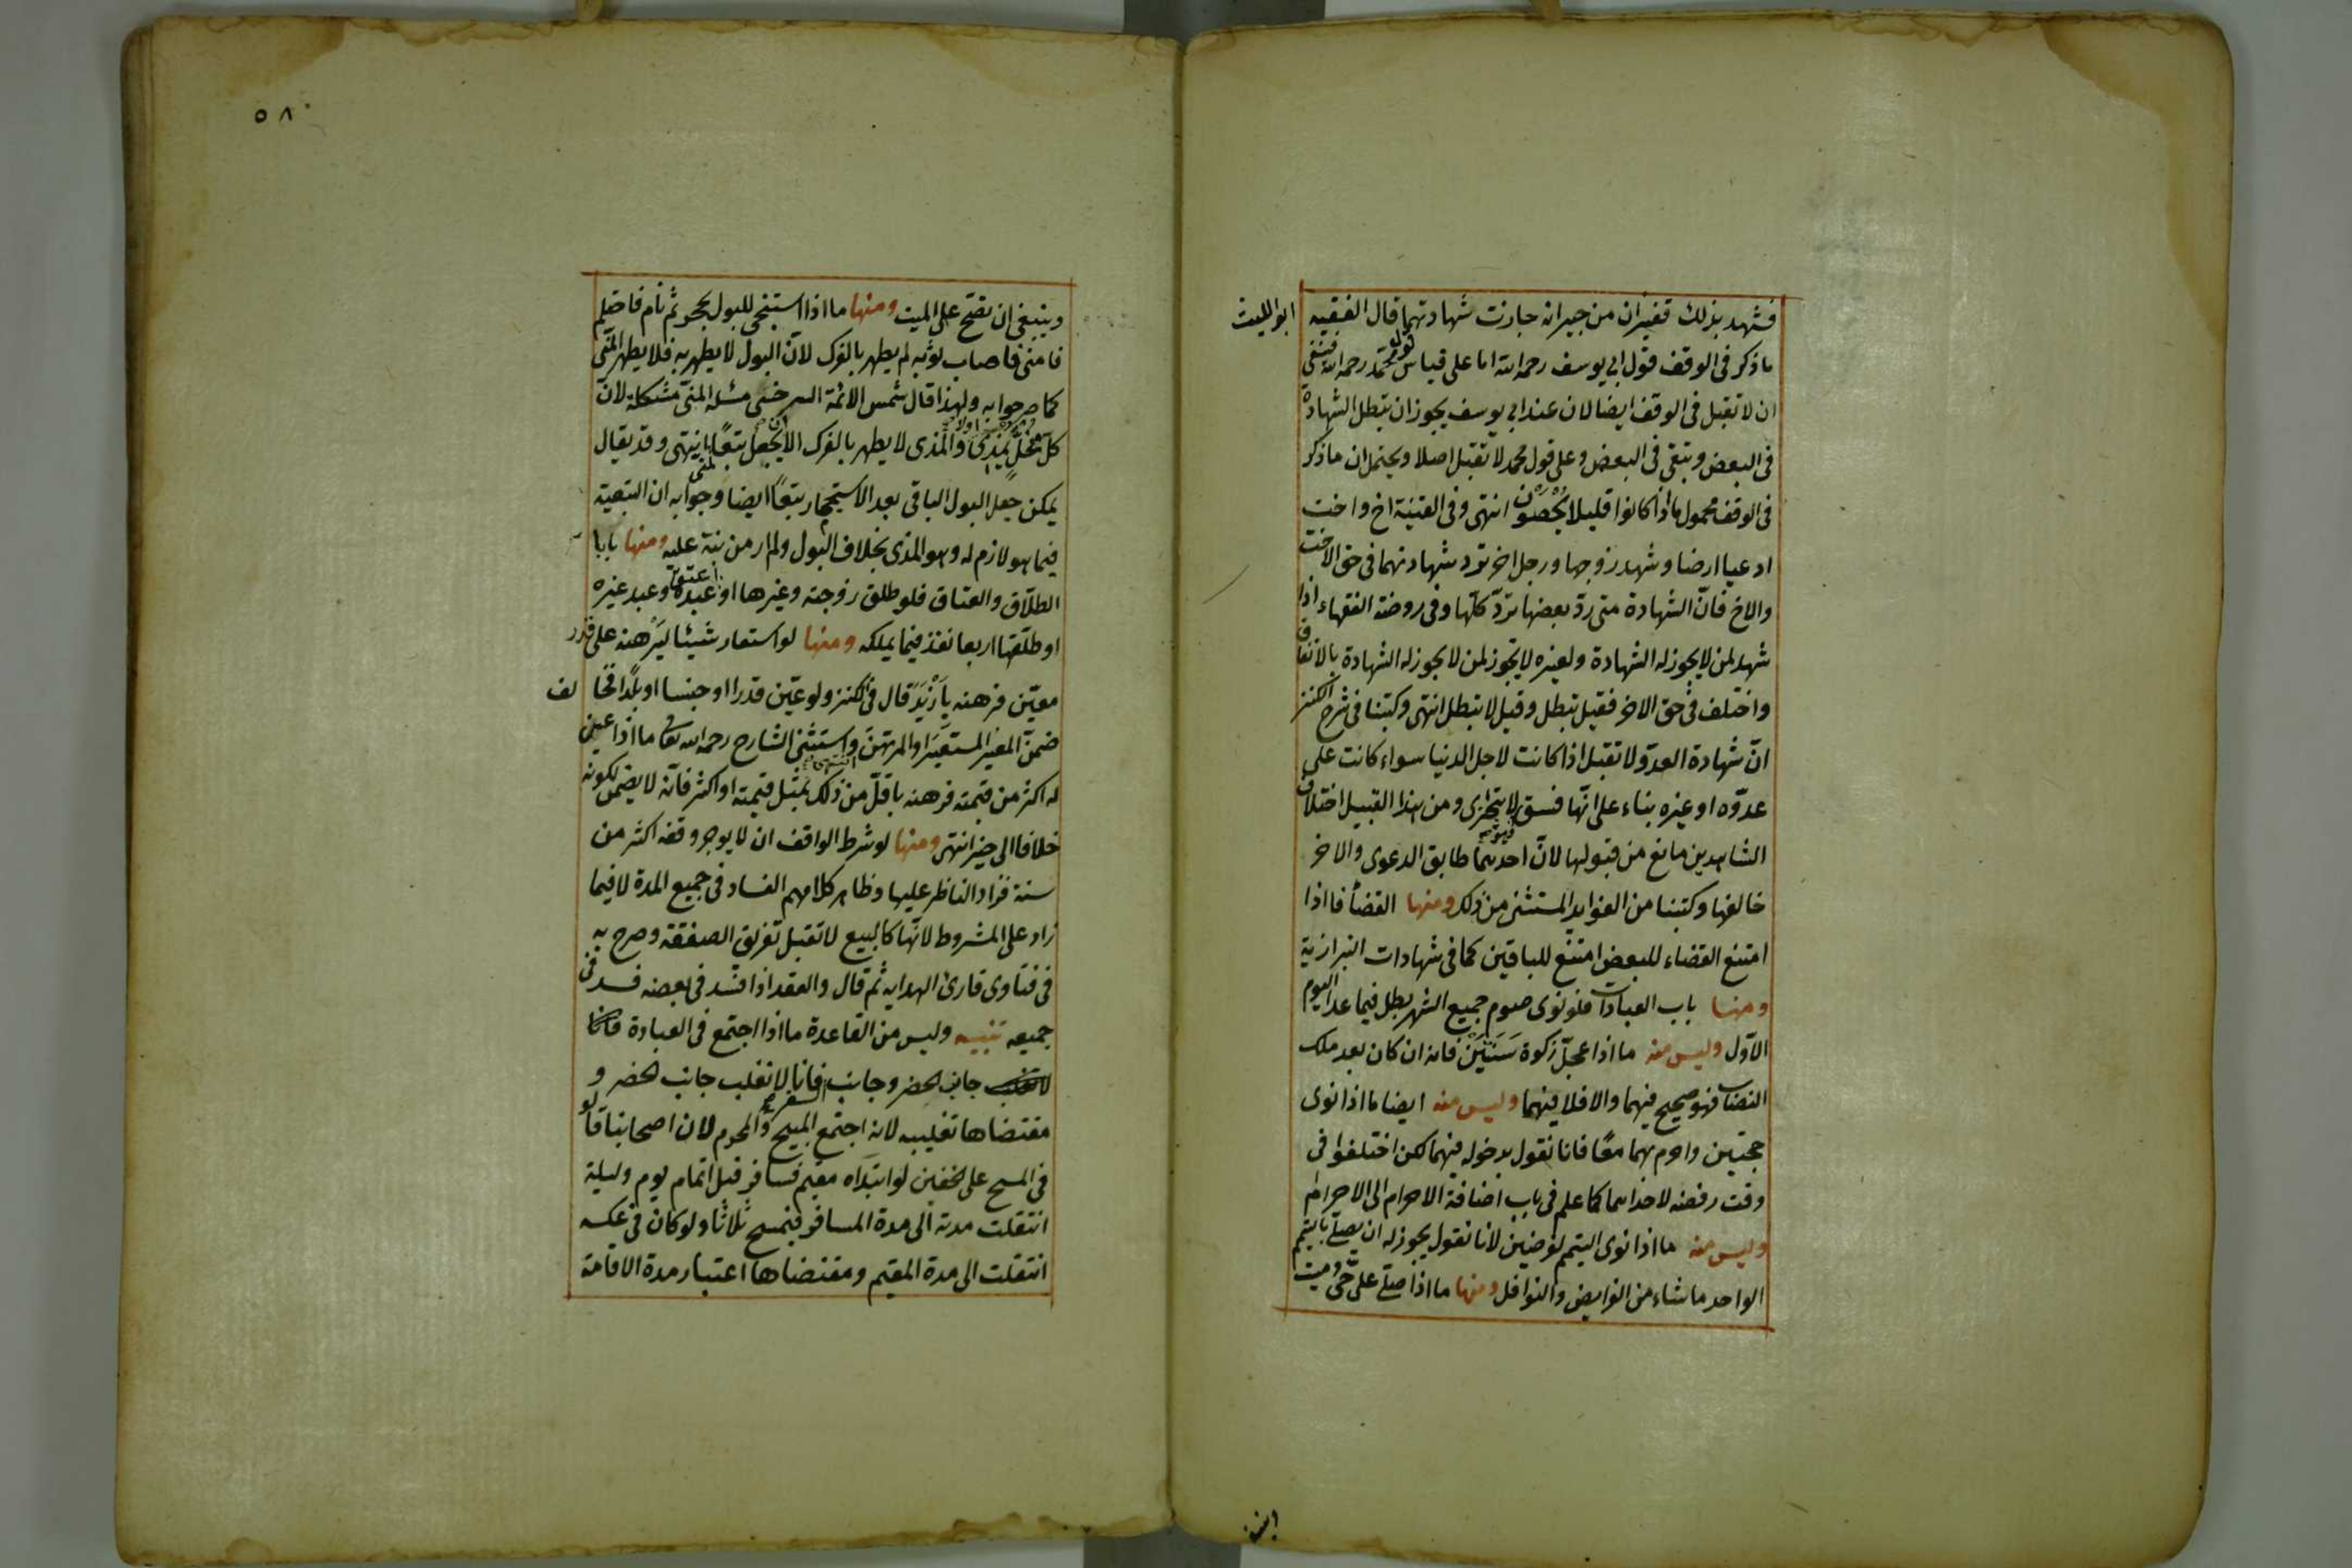 فشهد بذلك فقيران من جيرانه جازت شهادتهما قال الفقيه ابو الليث
ما ذكر فى الوقف قول ابى يوسف رحمه الله اما على قياس قول محمد رحمه الله فينبغى
ان لا تقبل فى الوقف ايضا لان عند ابى يوسف يجوز ان تبطل الشهادة
فى البعض وتبقى فى البعض وعلى قول محمد لا تقبل اصلا ويحتمل ان ما ذكر
فى الوقف محمول ما اذا كانوا قليلا يُحْصَوْن انتهى وفى القنية اخ واخت
ادعيا ارضا وشهد زوجها ورجل اخر ترد شهادتهما فى حق الاخت
والاخ فانّ الشهادة متى ردّ بعضها تردّ كلّها وفى روضة الفقهاء اذا
شهد لمن لا يجوز له الشهادة ولغيره لا يجوز لمن لا يجوز له الشهادة بالاتفاق
واختلف فى حق الاخر فقيل تبطل وقيل لا تبطل انتهى وكتبنا فى شرح الكنز
انّ شهادة العدوّ لا تقبل اذا كانت لاجل الدنيا سواء كانت على
عدوّه او غيره بناء على انّها فسق لا يتجزى ومن هذا القبيل اختلاف
الشاهدين مانع من قبولها لانّ احدهما طابق الدعوى والاخر
خالفها وكتبنا من الفوايد المستثنى من ذلك ومنها القضأ فاذا
امتنع القضاء للبعض امتنع للباقين كما فى شهادات البزازية
ومنها باب العبادات فلو نوى صوم جميع الشهر بطل فيما عدا اليوم
الاّول وليس منه ما اذا عجّل زكوة سَنَتَيْن فانه ان كان بعد ملك
النصاب فهو صحيح فيهما والا فلا فيهما وليس منه ايضا ما اذا نوى
حجتين واحرم بهما معًا فانا نقول بدخوله فيهما لكن اختلفوا فى
وقت رفضه لاحداهما كما علم فى باب اضافة الاحرام الى الاحرام
وليس منه ما اذا نوى التيمم لفرضين لانا نقول يجوز له ان يصلّى بالتيمم
الواحد ما شاء من الفرايض والنوافل ومنها ما اذا صلّى على حىّ وميت
٥٨٠
وينبغى ان تصحّ على الميت ومنها ما اذا استنجى للبول بحجر ثم نام فاحتلم
فامنى فاصاب ثوبه لم يطهر بالفرك لانّ البول لا يطهر به فلا يطهر المنى
كما صرحوا به ولهذا قال شمس الائمة السرخسى مسئلة المنىّ مشكلة لانّ
كلّ فحلٍ يَمْذى اولا والمذى لا يطهر بالفرك الا ان يجعل تبعًا انتهى وقد يقال
يمكن جعل البول الباقى بعد الاستجمار تبعًا ايضا وجوابه ان التبعية
فيما هو لازم له وهو المذى بخلاف البول ولم ار من نبّه عليه ومنها باب
الطلاق والعتاق فلو طلق زوجته وغيرها او اعتق عبده وعبد غيره
او طلّقها اربعا نفذ فيما يملكه ومنها لو استعار شيئا ليَرْهنه على قدر
معيّن فرهنه بازْيَدَ قال فى الكنز ولو عيّن قدرا او جنسا او بلدًا فخالف
ضمنّ المعير المستعيرَ او المرتهنَ واستثنى الشارح رحمه الله تعالى ما اذا عين
له اكثر من قيمته فرهنه باقلّ من ذلك بمثل قيمته او اكثر فانّه لا يضمن لكونه
خلافا الى خير انتهى ومنها لو شرط الواقف ان لا يوجر وقفه اكثر من
سنة فزاد الناظر عليها وظاهر كلامهم الفساد فى جميع المدة لا فيما
زاد على المشروط لانّها كالبيع لا تقبل تفريق الصفقة وصرح به
فى فتاوى قارئ الهدايه ثم قال والعقد اذا فسد فى بعضه فسد فى
جميعه تنبيه وليس من القاعدة ما اذا اجتمع فى العبادة
جانب الحضر وجانب السفر فانا لا نغلب جانب الحضر و
مقتضاها تغليبه لانه اجتمع المبيح والمحرم لان اصحابنا قالو
فى المسح على الخفين لو ابتدأه مقيم فسافر قبل اتمام يوم وليلة
انتقلت مدته الى مدة المسافر فيمسح ثلاثا ولو كان فى عكسه
انتقلت الى مدة المقيم ومقتضاها اعتبار مدة الاقامة